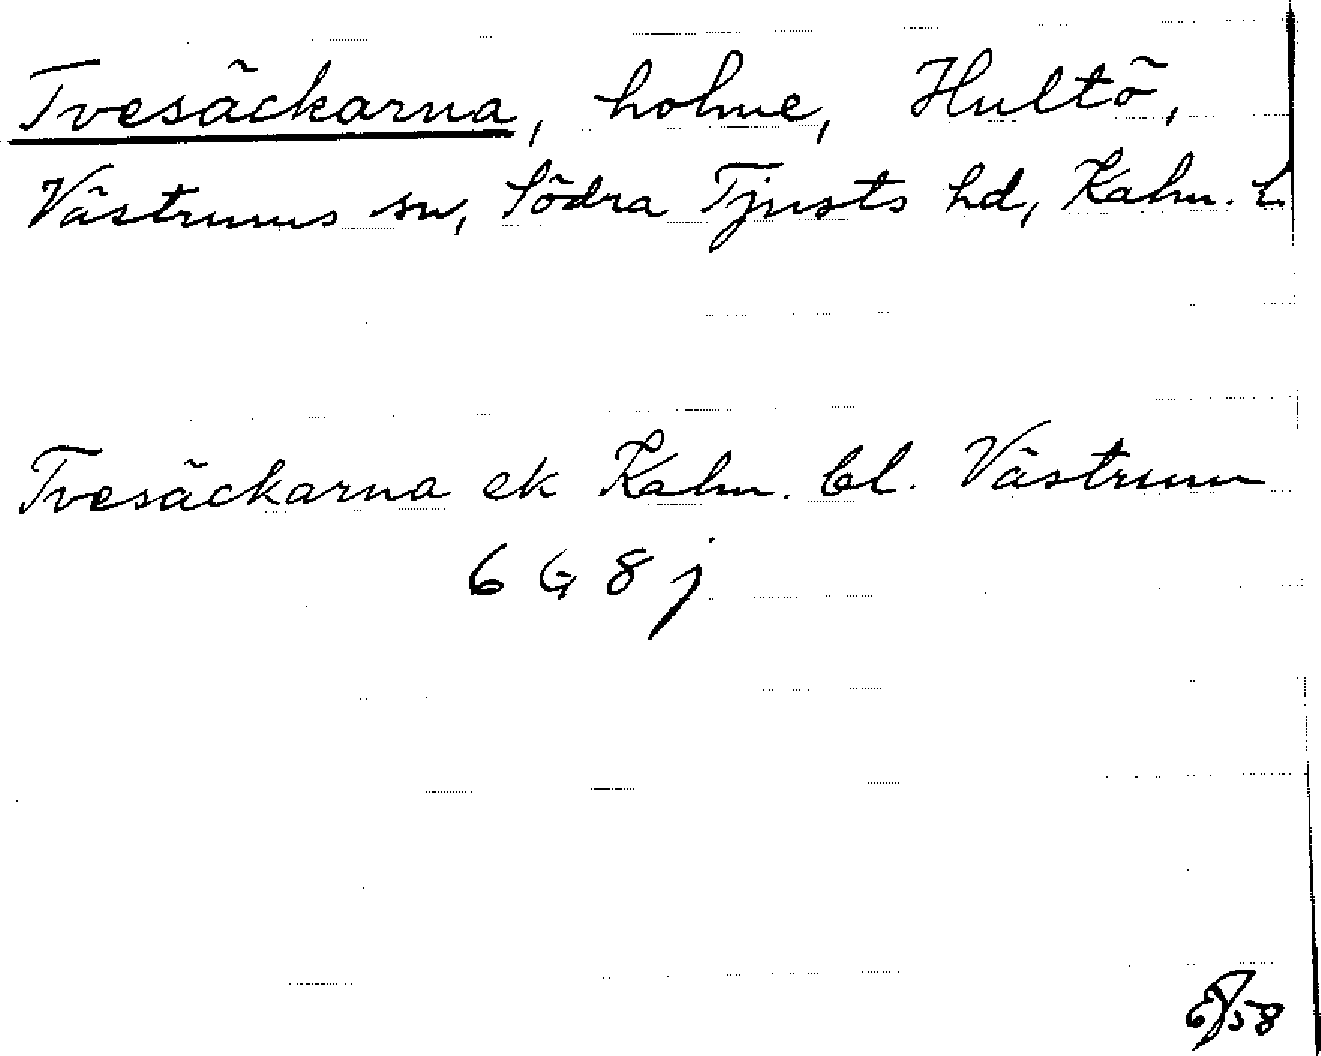 Tvesäckarna, holme, Hultö,
Västrums sn, Södra Tjusts hd, Kalm. l.
Tvesäckarna ek Kalm. bl. Västrum
6 G 8 j
58